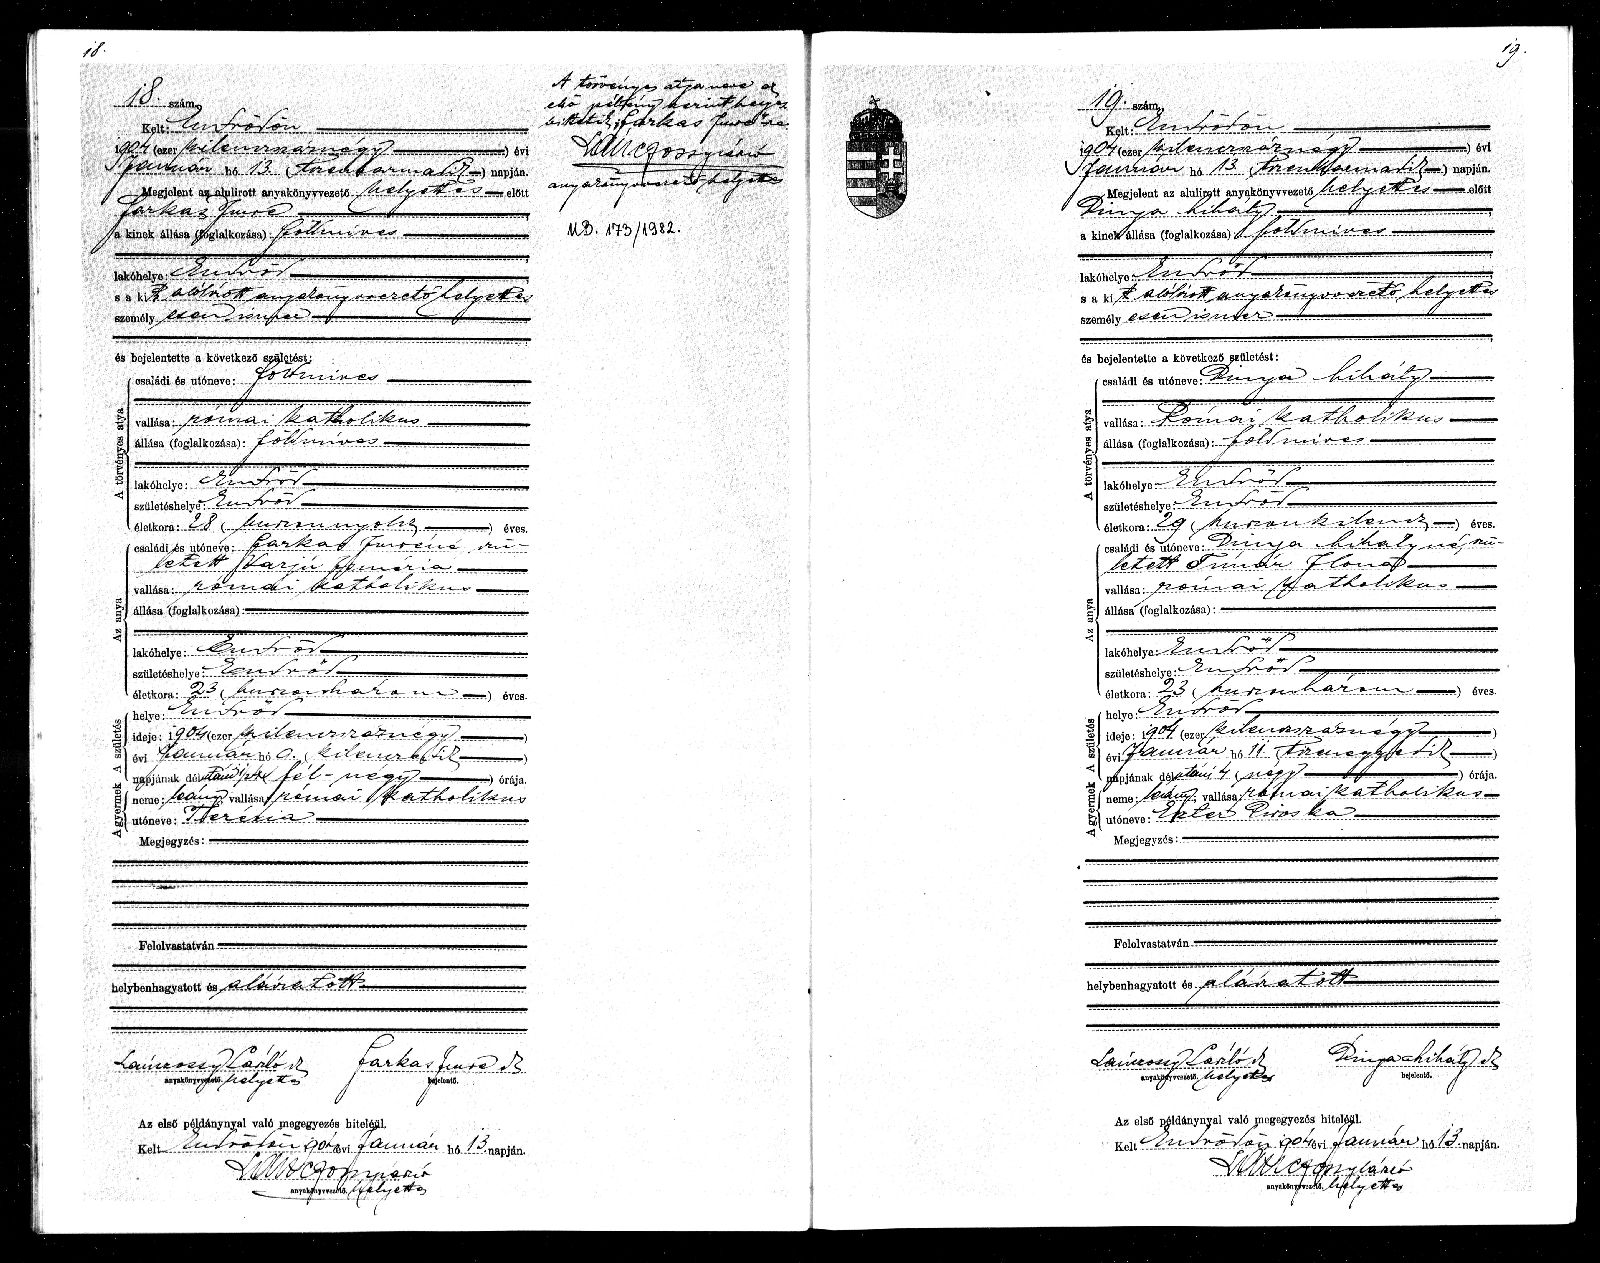 18.
18. szám.
Kelt: Endrődön
1904 (ezer kilenczszáznégy) évi
Január hó 13. (tizenharmadik) napján.
Megjelent az alulirott anyakönyvvezető helyettes előtt
Farkas Imre
a kinek állása (foglalkozása): földmives
lakóhelye: Endrőd
s a kit alólirott anyakönyvvezető helyettes
személyesen ismer
és bejelentette a következő születést:
A törvényes atya
családi és utóneve: földmives
vallása: római katholikus
állása (foglalkozása): földmives
lakóhelye: Endrőd
születéshelye: Endrőd
életkora: 28 (huszonnyolcz) éves.
Az anya
családi és utóneve: Farkas Imréné szü-
letett Varjú
vallása: római katholikus
állása (foglalkozása):
lakóhelye: Endrőd
születéshelye: Endrőd
életkora: 23 (huszonhárom) éves.
A gyermek A születés
helye: Endrőd
ideje: 1904 (ezer kilenczszáznégy)
évi Január hó 9. (kilenczedik)
napjának dél fél-négy) órája.
neme: leány, vallása: római katholikus
utóneve: Terézia
Megjegyzés:
Felolvastatván
helybenhagyatott és aláiratott
Lanczossy László sk Farkas Imre sk
anyakönyvvezető. helyettes bejelentő.
Az első példánynyal való megegyezés hiteléül.
Kelt Endrődön 904 évi Január hó 13. napján.
Lanczossy László
anyakönyvvezető. helyettes
A törvényes atya neve az
első példány szerint helyes-
bittetik „Farkas Imre"-re
Lanczossy László
anyakönyvvezető helyettes
MD. 173/1982.
19.
19. szám.
Kelt: Endrődön
1904 (ezer kilenczszáznégy) évi
Január hó 13 (tizenharmadik) napján.
Megjelent az alulirott anyakönyvvezető helyettes előtt
Dinya Mihály
a kinek állása (foglalkozása): földmives
lakóhelye: Endrőd
s a kit alólirott anyakönyvvezető helyettes
személyesen ismer
és bejelentette a következő születést:
A törvényes atya
családi és utóneve: Dinya Mihály
vallása: Római katholikus
állása (foglalkozása): földmives
lakóhelye: Endrőd
születéshelye: Endrőd
életkora: 29 (huszonkilencz) éves.
Az anya
családi és utóneve: Dinya Mihályné, szü-
letett Timár Ilona
vallása: római katholikus
állása (foglalkozása):
lakóhelye: Endrőd
születéshelye: Endrőd
életkora: 23 (huszonhárom) éves.
A gyermek A születés
helye: Endrőd
ideje: 1904 (ezer kilenczszáznégy)
évi Január hó 11. (tizenegyedik)
napjának délutáni 4 (négy) órája.
neme: leány, vallása: római katholikus
utóneve: Eszter Piroska
Megjegyzés:
Felolvastatván
helybenhagyatott és aláiratott
Lanczossy László sk Dinya Mihály sk
anyakönyvvezető. helyettes bejelentő.
Az első példánynyal való megegyezés hiteléül.
Kelt Endrődön 904 évi Január hó 13. napján.
Lanczossy László
anyakönyvvezető. helyettes